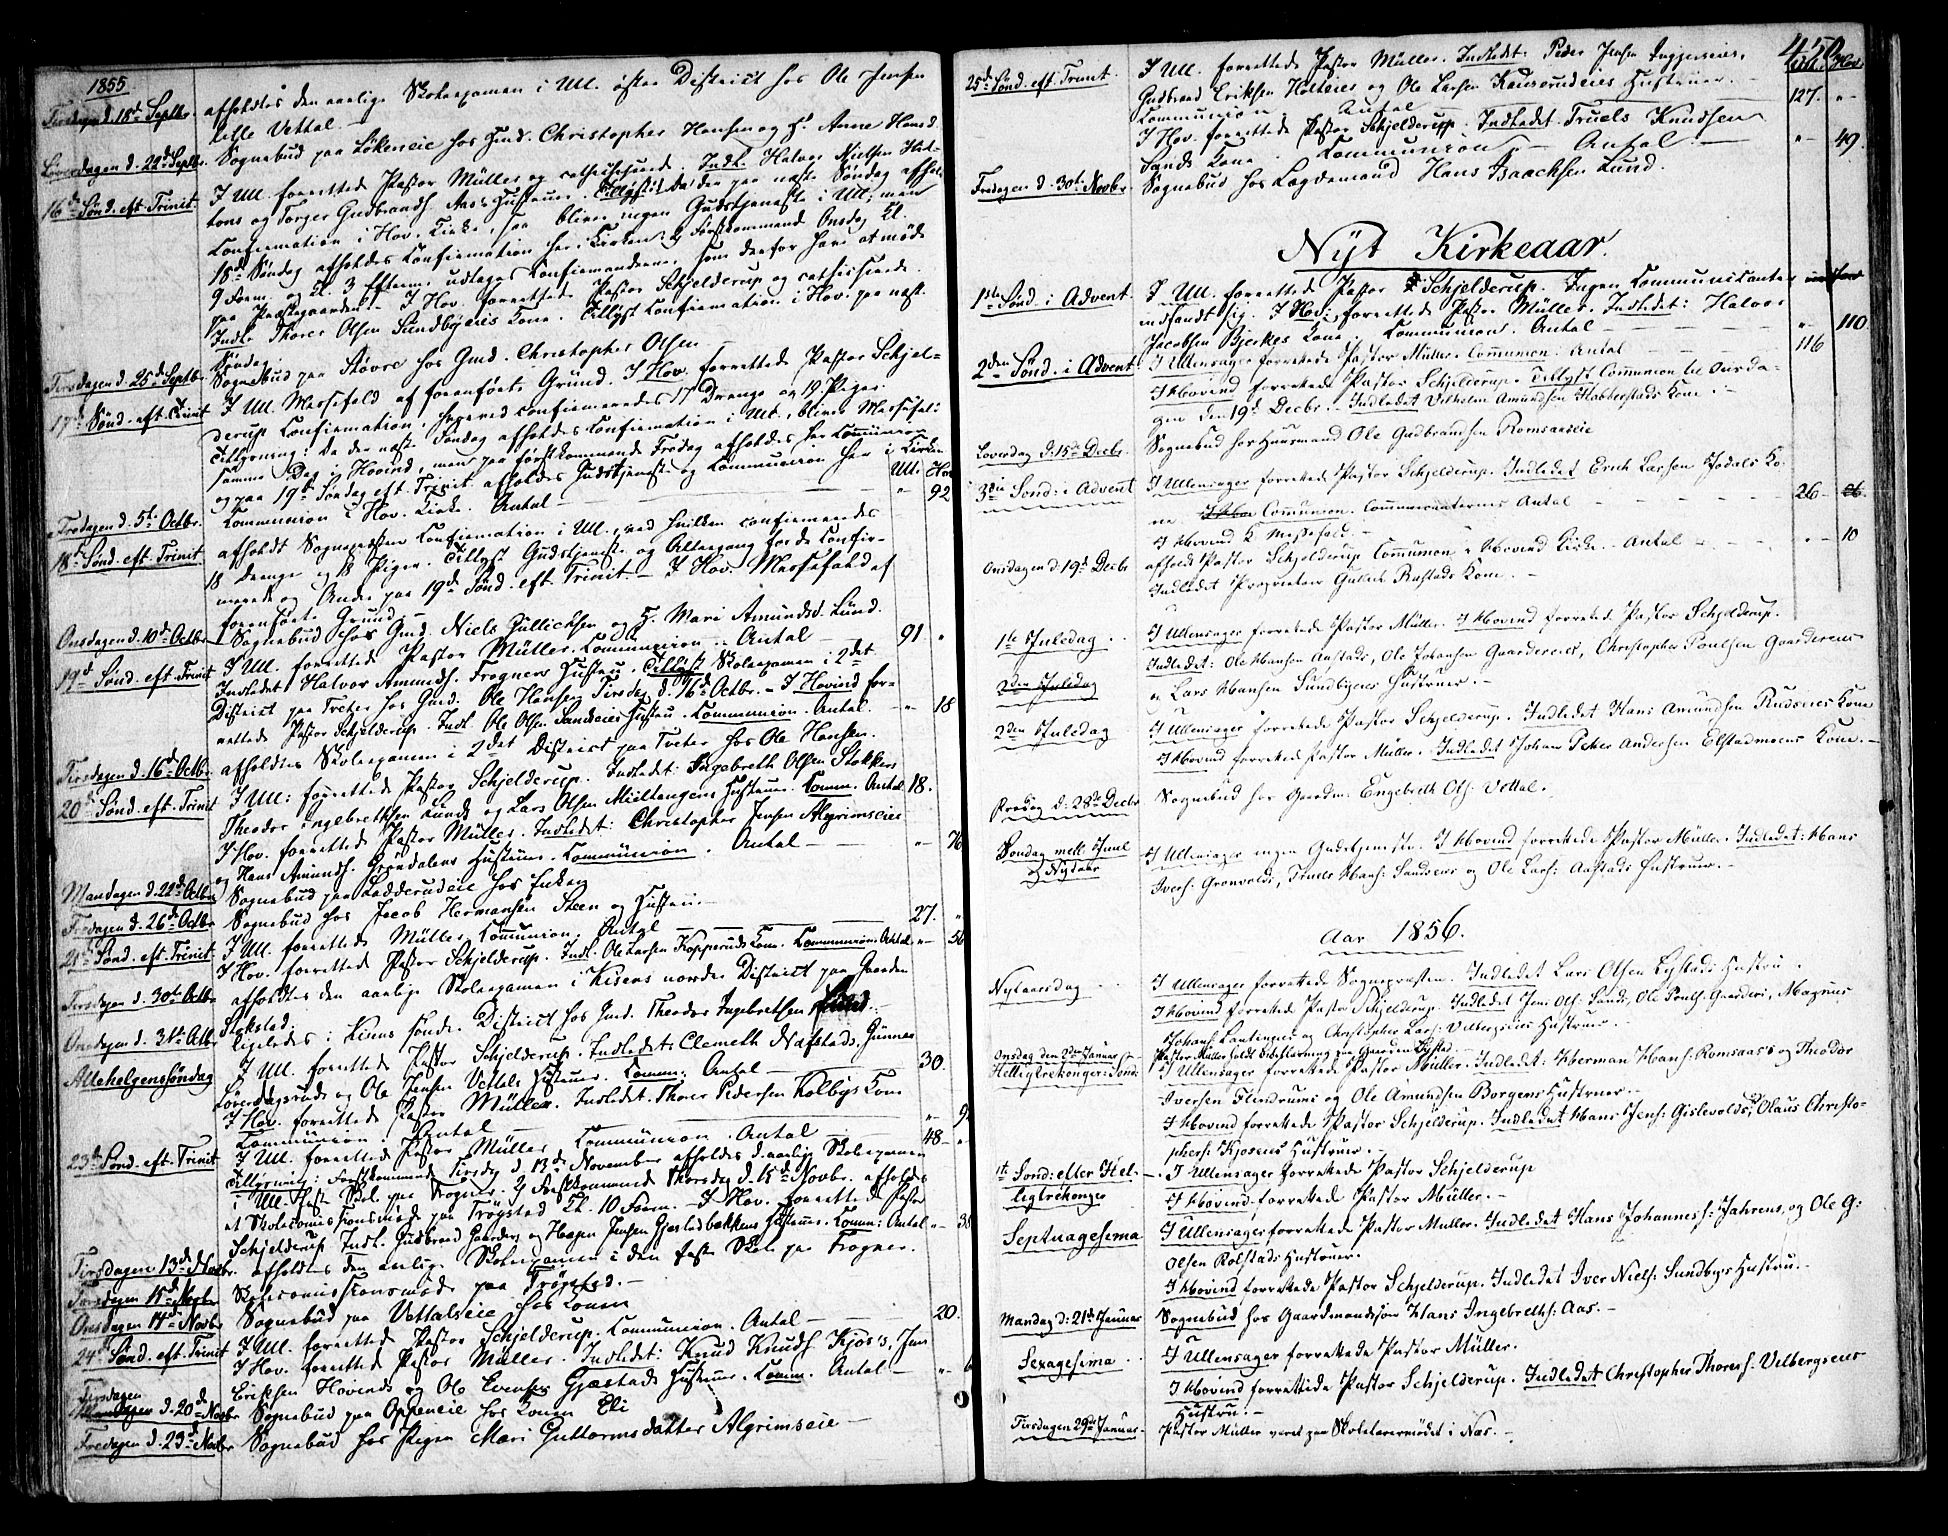 1855
Tirsdagen d. 18de Septbr. afholdtes den aarlige Skoleexamen i Ull. østre District hos Ole Jensen
lille Vettal
Løverdagen d. 22de Septbr. Sognebud paa Løkeneie hos Hmd. Christopher Hansen og H. Anne Hansd.
16de Sønd. eft. Trinit. I Ull. forrettede Pastor Müller og catheciserede. Indl. Halvor Nielsen
og Torger Gudbrands. Aas's Hustruer. Tillyst: Da der paa næste Søndag afhol-
Confirmation i Hov. Kirke, saa bliver ingen Gudstjeneste i Ull, men
18de Søndag afholdes Confirmation her i Kirken. Førstkommende Onsdag Kl.
9 Form. og Kl. 3 Efterm. udtages Confirmanderne, som derfor have at møde
paa Præstegaarden. I Hov. forrettede Pastor Schjelderup og catheciserede.
Indl. Thorer Olsen Sundbyeies Kone. Tillyst Confirmation i Hov. paa næst.
Søndag.
Tirsdagen d. 25de Septbr. Sognebud paa Kløvre hos Gmd. Christopher Olsen
17de Sønd. eft. Trinit. I Ull. Messefald af foranførte Grund. I Hov. forrettede Pastor Schjel-
derup Confirmation, hvorved confirmeredes 17 Drenge og 19 Piger.
Tillysning: Da der næste Søndag afholdes Confirmation i Ull., bliver Messefal:
samme Dag i Hovind, men paa førstkommende Fredag afholdes her Communion
og paa 19de Søndag eft. Trinit. afholdes Gudstjeneste og Communion her i Kirken
Ull. Hov.
Fredagen d. 5te Octbr. Communion i Hov. Kirke. Antal - " 92
18de Sønd. eft. Trinit. afholdt Sognepræsten Confirmation i Ull., ved hvilken confirmeredes
18 Drenge og 18 Piger. Tillyst Gudstjeneste og Altergang for de Confir-
merede og Andre paa 19de Sønd. eft. Trinit. - I Hov. Messefald af
foranførte Grund -
Onsdagen d. 10de Octbr. Sognebud hos Gmd. Niels Gullichsen og H. Mari Amundsd. Lund.
19de Sønd. eft. Trinit I Ull. forrettede Pastor Müller. Communion. Antal - 91. "
Indledet Halvor Amunds. Frogners Hustru. Tillyst Skoleexamen i 2det
District paa Tveter hos Gmd. Ole Hansen Tirsdag d. 16de Octbr. - I Hovind for-
rettede Pastor Schjelderup. Indl. Ole Olsen Sandseies Hustru. Communion. Antal. - " 18
Tirsdagen d. 16de Octbr. afholdtes Skoleexamen i 2det District paa Tveter hos Ole Hansen.
20de Sønd. eft. Trinit I Ull: forrettede Pastor Schjelderup. Indledet: Ingebreth Olsen Stokkers
Theodor Ingebrethsen Lunds og Lars Olsen Mieltangens Hustruer. Comm. Antal 18.
I Hov. forrettede Pastor Müller. Indledet: Christopher Jensen Algrimseies
og Hans Amunds. Grøndalens Hustruer. Communion. Antal - " 76
Mandagen d. 22de Octbr. Sognebud paa Ladderudeie hos Enken
Fredagen d. 26de Octbr. Sognebud hos Jacob Hermansen Steen og Hustru.
21de Sønd. eft. Trinit. I Ull. forrettede Müller. Communion. Antal - 27. "
I Hov. forrettede Pastor Schjelderup. Indl. Ole Larsen Kopperuds Kone. Communion. Antal " 56
Tirsdagen d. 30te Octbr. afholdtes den aarlige Skoleexamen i Kisens nordre District paa Gaarden
Stokstad.
Onsdagen d. 31te Octbr. ligeledes i Kisens søndr. District hos Gmd. Theodor Ingebrethsen
Allehelgenssøndag I Ull. forrettede Pastor Schjelderup. Indledet: Clemeth Nafstads, Gunner
Løverdagsruds og Ole Jensen Vettals Hustruer. Comm. Antal - 30.
I Hov. forrettede Pastor Müller. Indledet: Thorer Pedersen Kolbys Kone
Communion. Antal - " 9
23de Sønd. eft. Trinit I Ull. forrettede Pastor Müller. Communion. Antal - 48. "
Tillysning: Førstkommende Tirsdag d. 13de November afholdes d. aarlige Skoleexamen
i Ull. faste Skol. paa Frogner. 2) Førstkommende Thorsdag d. 15de Novbr. afholdes
et Skolecomissionsmøde paa Trøgstad Kl. 10 Form. - I Hov. forrettede Pastor
Schjelderup. Indl. Gudbrand Gaarders og Haagen Jensen Gjestadbakkens Hustruer. Comm: Antal - " 38
Tirsdagen 13de Novbr. afholdtes den aarlige Skoleexamen i den faste Skole paa Frogner.
Torsdagen 15de Novbr. Skolecomissionsmøde paa Trøgstad. -
Onsdagen 14de Novbr. Sognebud paa Vettalseie hos Konen
24de Sønd. eft. Trinit I Ull. forrettede Pastor Schjelderup. Communion. Antal - 20.
I Hov. forrettede Pastor Müller. Indledet: Knud Knuds. Kjos's, Jens
Eriksen Hovinds og Ole Evensens Gjæstads Hustruer. Comm. Antal - " 6
Tirsdagen d. 20de Novbr. Sognebud paa Oppeneie hos Konen Eli
Fredagen d. 23de Novbr. Sognebud hos Pigen Mari Guttormsdatter Algrimseie -
450
Ull. Hov.
25de Sønd. eft. Trinit. I Ull. forrettede Pastor Müller. Indledet: Peder Jensen
Gudbrand Eriksen Holteies og Ole Larsen Kauserudeies Hustruer -
Communion Antal - 127. "
I Hov. forrettede Pastor Schjelderup. Indledet: Truels Knudsen
Sands Kone. Communion - Antal - " 49.
Fredagen d. 30te Novbr. Sognebud hos Lagdemand Hans Isaachsen Lund.
Nyt Kirkeaar.
1ste Sønd. i Advent I Ull. forrettede Pastor Schjelderup. Ingen Communicanter
indfandt sig. I Hov: forrettede Pastor Müller. Indledet: Halvor
Jacobsen Bjerkes Kone Communion. Antal - " 110
2den Sønd. i Advent I Ullensager forrettede Pastor Müller. Communion: Antal - 116
I Hovind forrettede Pastor Schjelderup. Tillyst Communion til Onsda-
gen den 19de Decbr. - Indledet Vilhelm Amundsen Habberstads Kone. -
Løverdag d: 15de Decbr. Sognebud hos Huusmand Ole Gudbrandsen Romsaaseie
3die Sønd: i Advent I Ullensager forrettede Pastor Schjelderup. Indledet Erich Larsen Jødals Ko-
ne. Communion. Communicanternes Antal - 26 -
I Hovind Messefald -
Onsdagen d: 19de Decbr afholdt Pastor Schjelderup Communion i Hovind Kirke. - Antal - " 10
Indledet Proprietair Gulbr. Rustads Kone. -
1ste Juledag . . I Ullensager forrettede Pastor Müller. I Hovind forrettede Pastor Schjelderup.
Indledet: Ole Hansen Aastads, Ole Johansen Gaardereies, Christopher Poulsen Gaardereies
2den Juledag
og Lars Hansen Sundbyeies Hustruer. -
2den Juledag I Ullensager forrettede Pastor Schjelderup. Indledet Hans Amundsen Rudseies Kone
I Hovind forrettede Pastor Müller. Indledet Johan Peter Andersen Elstadmoens Kone. -
Fredag d: 28de Decbr Sognebud hos Gaardm. Engebreth Ols: Vettal. -
Søndag mell. Juul
og Nytaar
I Ullensager ingen Gudstjeneste. I Hovind forrettede Pastor Müller. Indledet: Hans
Ivers: Grønvolds, Truels Hans: Sandseies og Ole Lars: Aastads Hustruer. -
Aar 1856.
Nytaarsdag . . I Ullensager forrettede Sognepræsten. Indledet Lars Olsen Lystads Hustru.
I Hovind forrettede Pastor Schjelderup. Indledet Jens Ols: Sands, Ole Pouls: Gaarders, Magnus
Johans: Lautinger og Christopher Lars: Velbergseies Hustruer. -
Onsdag den 2den Januar Pastor Müller holdt Bibellæsning paa Gaarden Lystad. -
Helligtrekonger: Sønd: I Ullensager forrettede Pastor Müller. Indledet: Herman Hans: Romsaas's og Theodor
Iversen Flindrums og Ole Amundsen Borgens Hustruer. -
I Hovind forrettede Pastor Schjelderup. Indledet Hans Jens: Gislevolds, Olaus Christo-
phers: Kjoseies Hustruer. -
1ste Sønd: efter Hel-
ligtrekonger
I Ullensager forrettede Pastor Schjelderup
I Hovind forrettede Pastor Müller. -
Septuagesima I Ullensager forrettede Pastor Müller. Indledet Hans Johanness: Jahrens, og Ole G:
Olsen Rolstads Hustruer.
I Hovind forrettede Pastor Schjelderup. Indledet Iver Niels: Sundbyes Hustru. -
Mandag d: 21de Januar Sognebud hos Gaardmandssøn Hans Ingebreths: Aas. -
Sexagesima . I Ullensager forrettede Pastor Müller.
I Hovind forrettede Pastor Schjelderup. Indledet Christopher Thores: Velbergseies
Hustru. -
Tirsdagen 29de Januar - Pastor Müller været paa Skolelærermødet i Næs. -